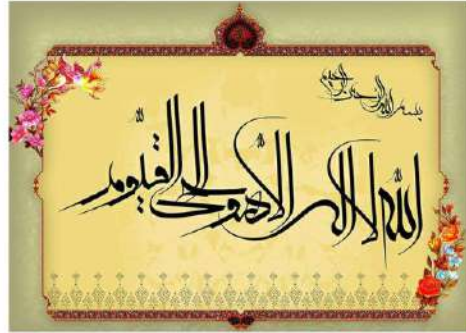 بسم الله الرحمن الرحيم
الله لا اله الا هو الحى القيوم